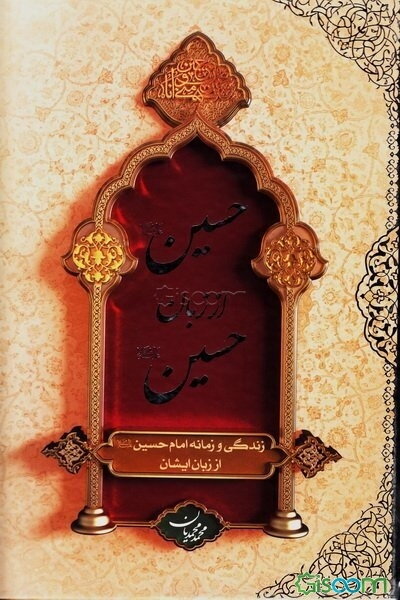 حسین
از زبان
حسین
زندگی و زمانه امام حسین
از زبان ایشان
محمد محمدیان
Gisoom